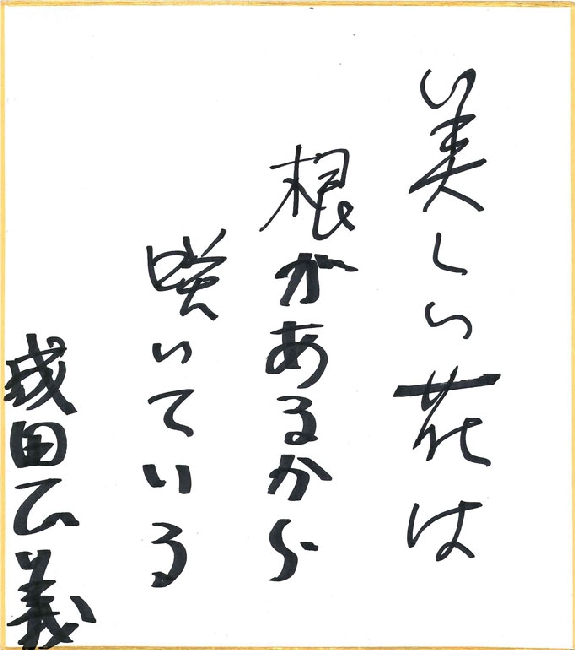 美しい花は
根があるから
咲いている
成田正義